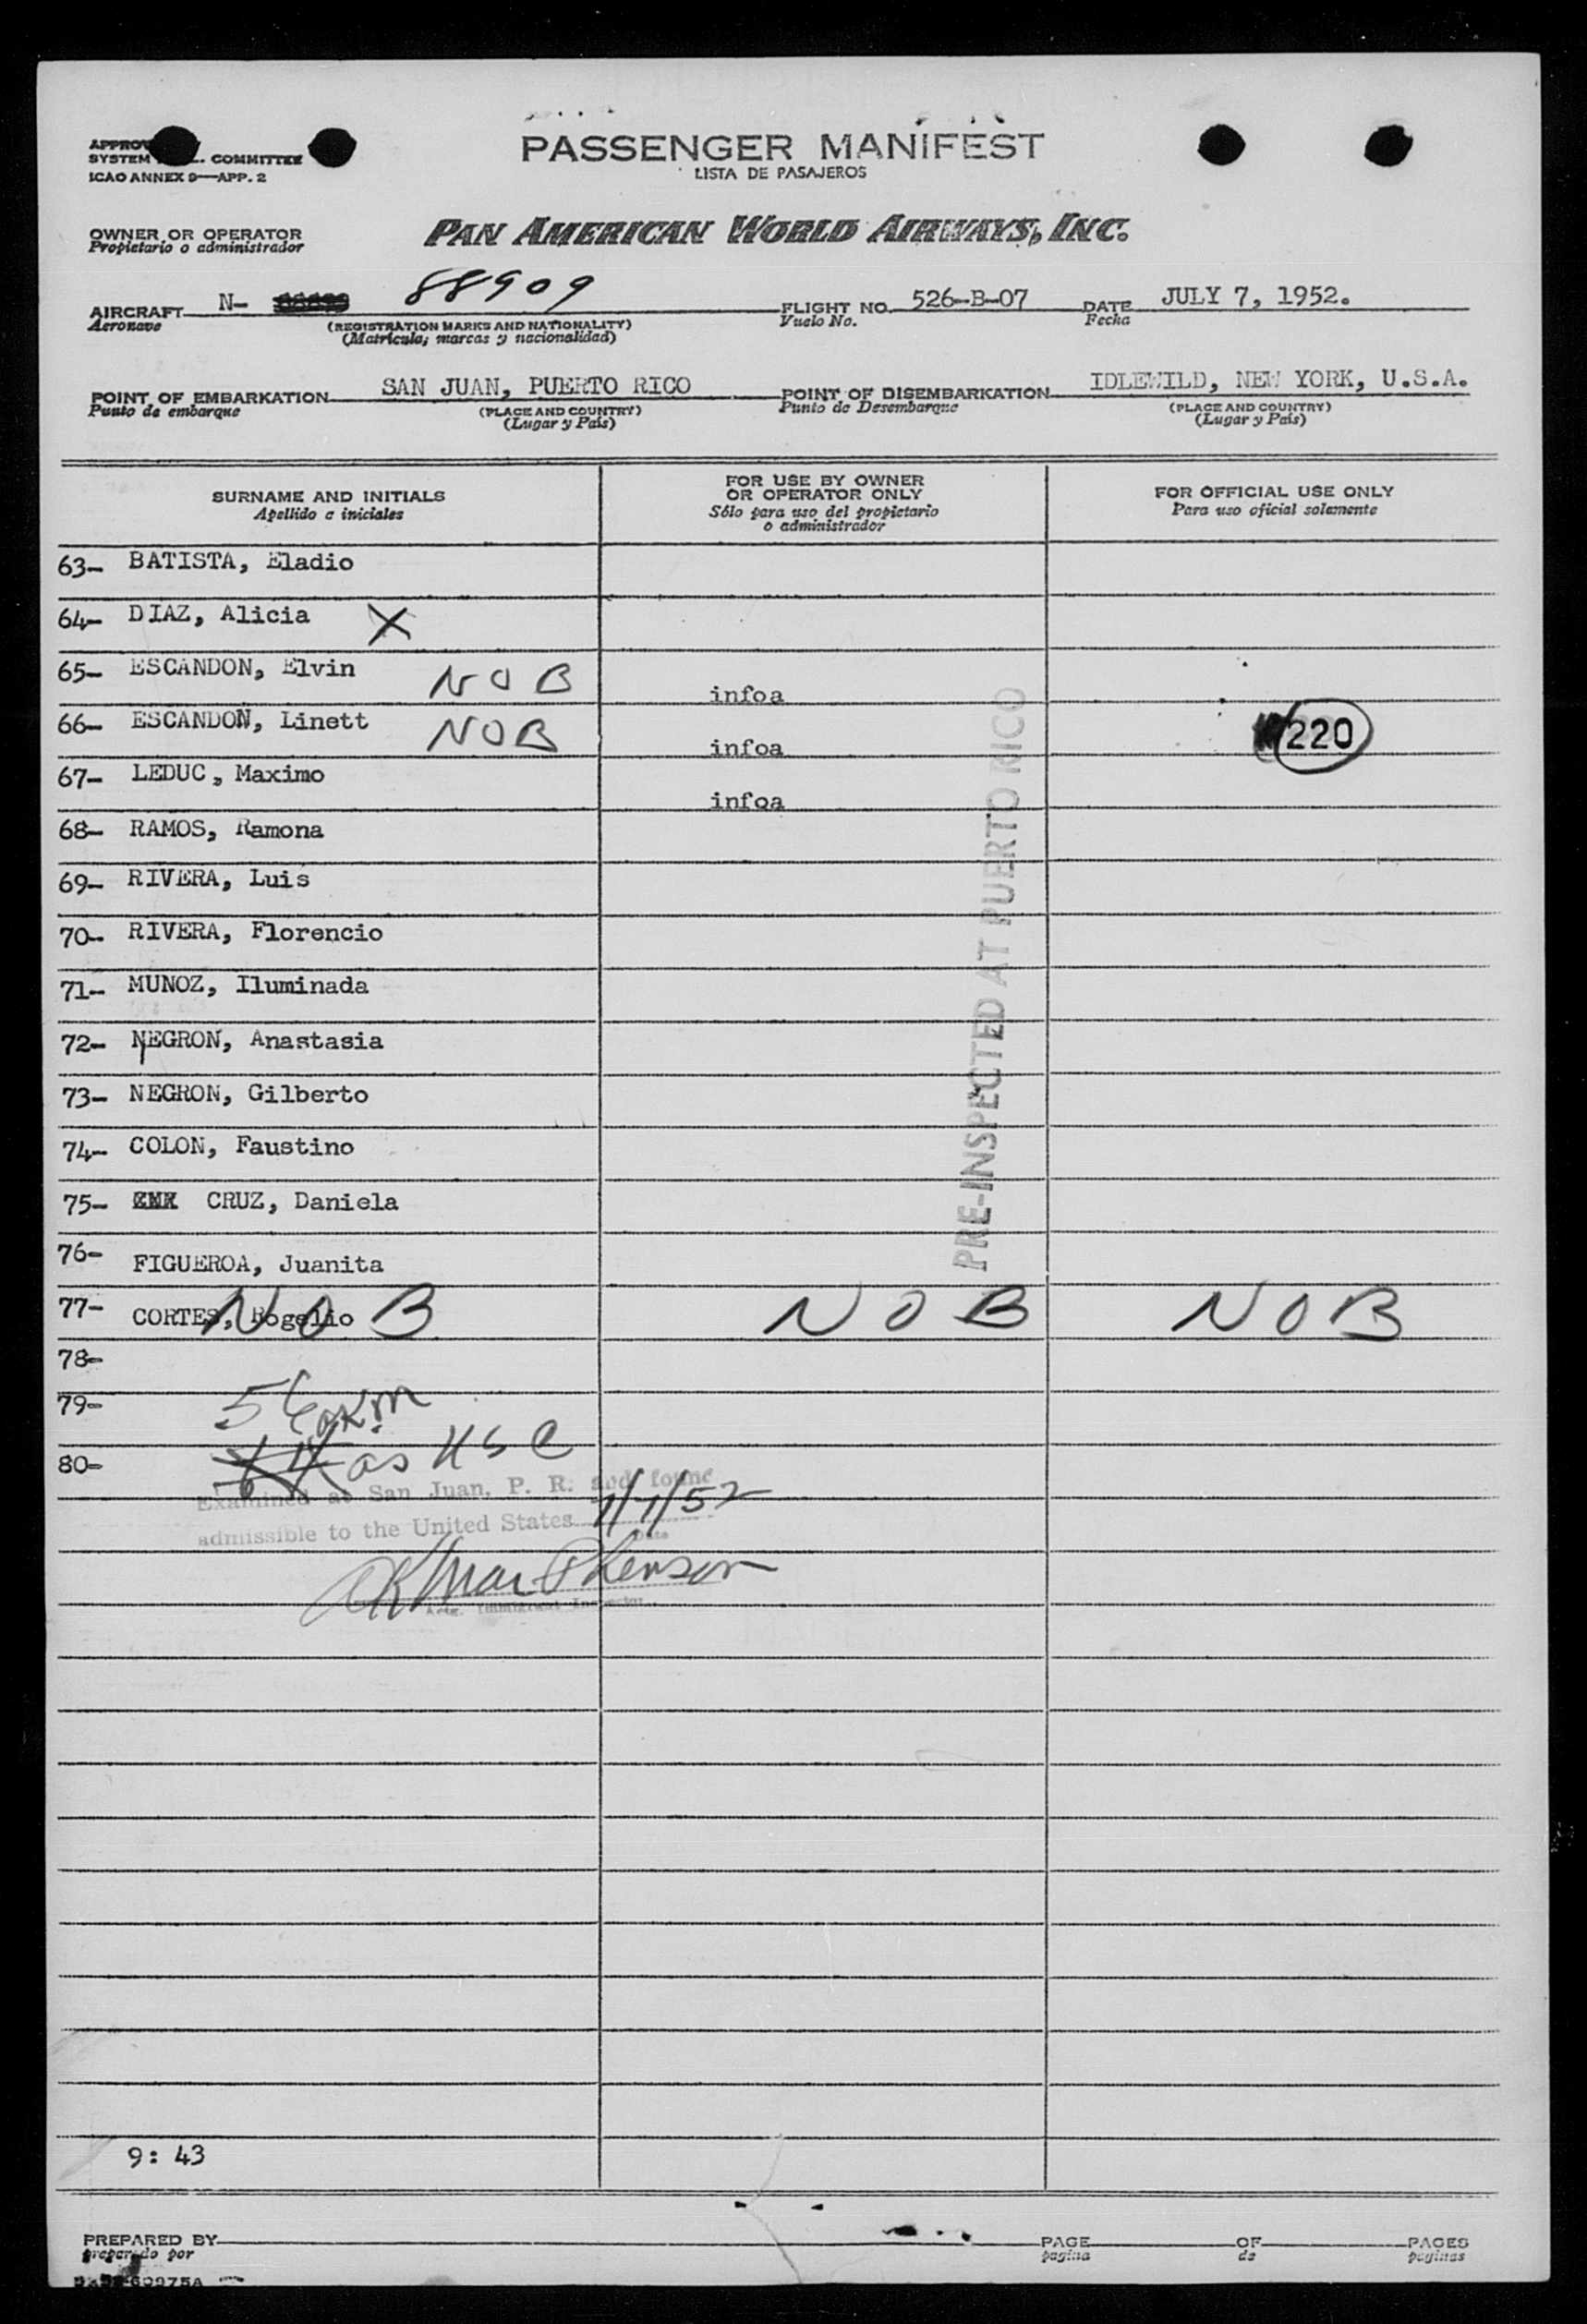 PASSENGER MANIFEST
LISTA DE PASAJEROS
SYSTEM COMMITTEE
ICAO ANNEX 9—APP. 2
OWNER OR OPERATOR
Propietario o administrador
PAN AMERICAN WORLD AIRWAYS, INC.
AIRCRAFT N- 88909 FLIGHT NO. 526-B-07 DATE JULY 7, 1952.
Aeronave (REGISTRATION MARKS AND NATIONALITY) Vuelo No. Fecha
(Matricula; marcas y nacionalidad)
POINT OF EMBARKATION SAN JUAN, PUERTO RICO POINT OF DISEMBARKATION IDLEWILD, NEW YORK, U.S.A.
Punto de embarque (PLACE AND COUNTRY) Punto de Desembarque (PLACE AND COUNTRY)
(Lugar y País) (Lugar y País)
SURNAME AND INITIALS
Apellido a iniciales
FOR USE BY OWNER
OR OPERATOR ONLY
Sólo para uso del propietario
o administrador
FOR OFFICIAL USE ONLY
Para uso oficial solamente
63- BATISTA, Eladio
64- DIAZ, Alicia X
65- ESCANDON, Elvin NOB infoa
66- ESCANDON, Linett NOB infoa 220
67- LEDUC, Maximo infoa
68- RAMOS, Ramona
69- RIVERA, Luis
70- RIVERA, Florencio
71- MUNOZ, Iluminada
72- NEGRON, Anastasia
73- NEGRON, Gilberto
74- COLON, Faustino
75- CRUZ, Daniela
76- FIGUEROA, Juanita
77- CORTES, Rogelio NOB NOB NOB
78-
79- 56
80- as USC
PRE-INSPECTED AT PUERTO RICO
Examined at San Juan, P. R. and found
admissible to the United States 7/7/52
Date
9: 43
PREPARED BY PAGE OF PAGES
preparado por pagina de paginas